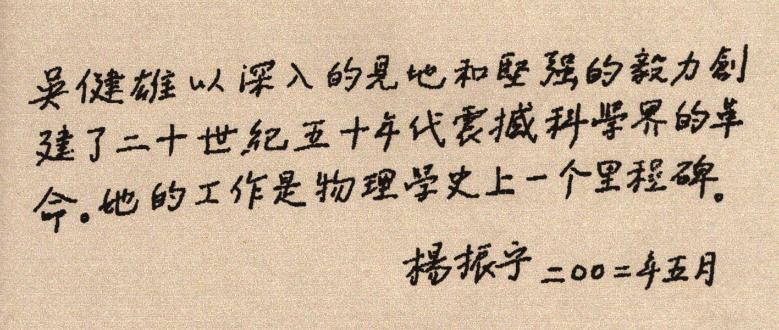 吳健雄以深入的見地和堅强的毅力創
建了二十世紀五十年代震撼科學界的革
命。她的工作是物理學史上一个里程碑。
楊振宁 二〇〇二年五月